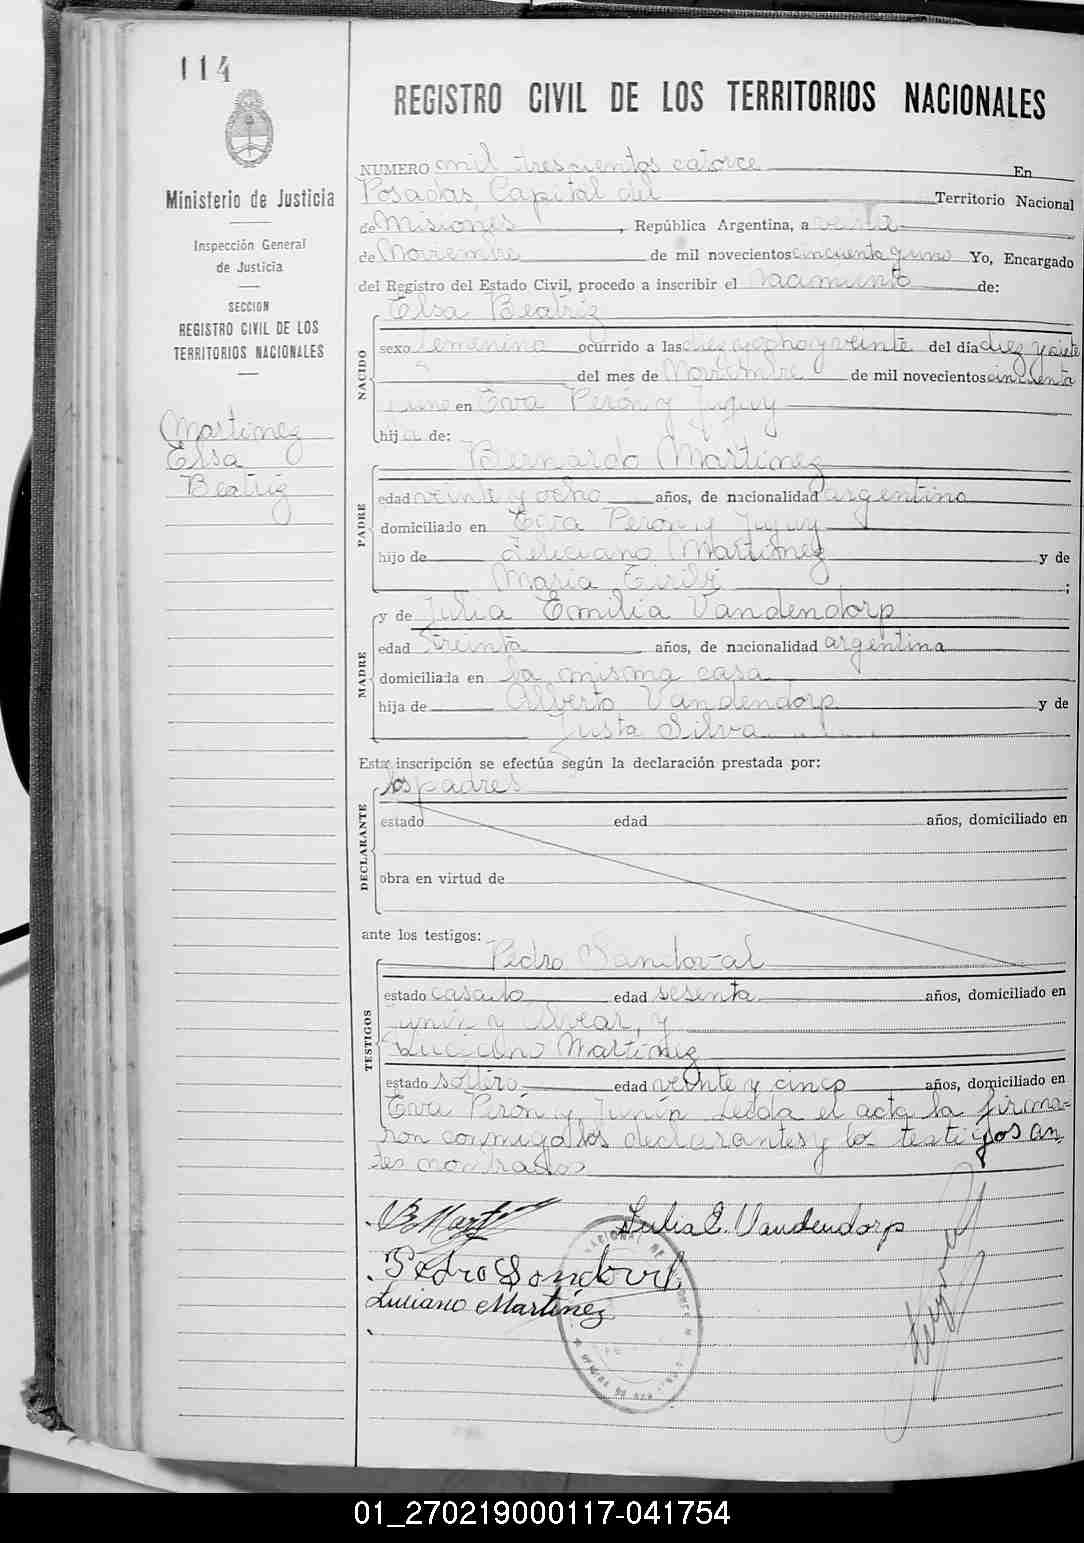 114
REGISTRO CIVIL DE LOS TERRITORIOS NACIONALES
Ministerio de Justicia
Inspección General
de Justicia
SECCION
REGISTRO CIVIL DE LOS
TERRITORIOS NACIONALES
Martinez
Elsa
Beatriz
NUMERO mil trescientos catorce En
Posadas, Capital del Territorio Nacional
de Misiones, República Argentina, a veinte
de Noviembre de mil novecientos cincuenta y uno Yo, Encargado
del Registro del Estado Civil, procedo a inscribir el Nacimiento de:
NACIDO
Elsa Beatriz
sexo femenino ocurrido a las diez y ocho y veinte del día diez y siete
del mes de Noviembre de mil novecientos cincuenta
y uno en Eva Perón y Jujuy
hija de:
PADRE
Bernardo Martinez
edad veinte y ocho años, de nacionalidad argentino
domiciliado en Eva Perón y Jujuy
hijo de Feliciano Martinez y de
Maria ;
MADRE
y de Julia Emilia Vandendorp
edad treinta años, de nacionalidad argentina
domiciliada en la misma casa
hija de Alberto Vandendorp y de
Justa Silva
Esta inscripción se efectúa según la declaración prestada por:
DECLARANTE
los padres
estado edad años, domiciliado en
obra en virtud de
ante los testigos:
TESTIGOS
Pedro Sandoval
estado casado edad sesenta años, domiciliado en
Junín y Alvear, y
Luciano Martinez
estado soltero edad veinte y cinco años, domiciliado en
Eva Perón y Junín Leida el acta la firma=
ron conmigo los declarantes y los testigos an
tes nombrados
B Mart
Julia E. Vandendorp
Pedro Sandoval
Luciano Martinez
01_270219000117-041754